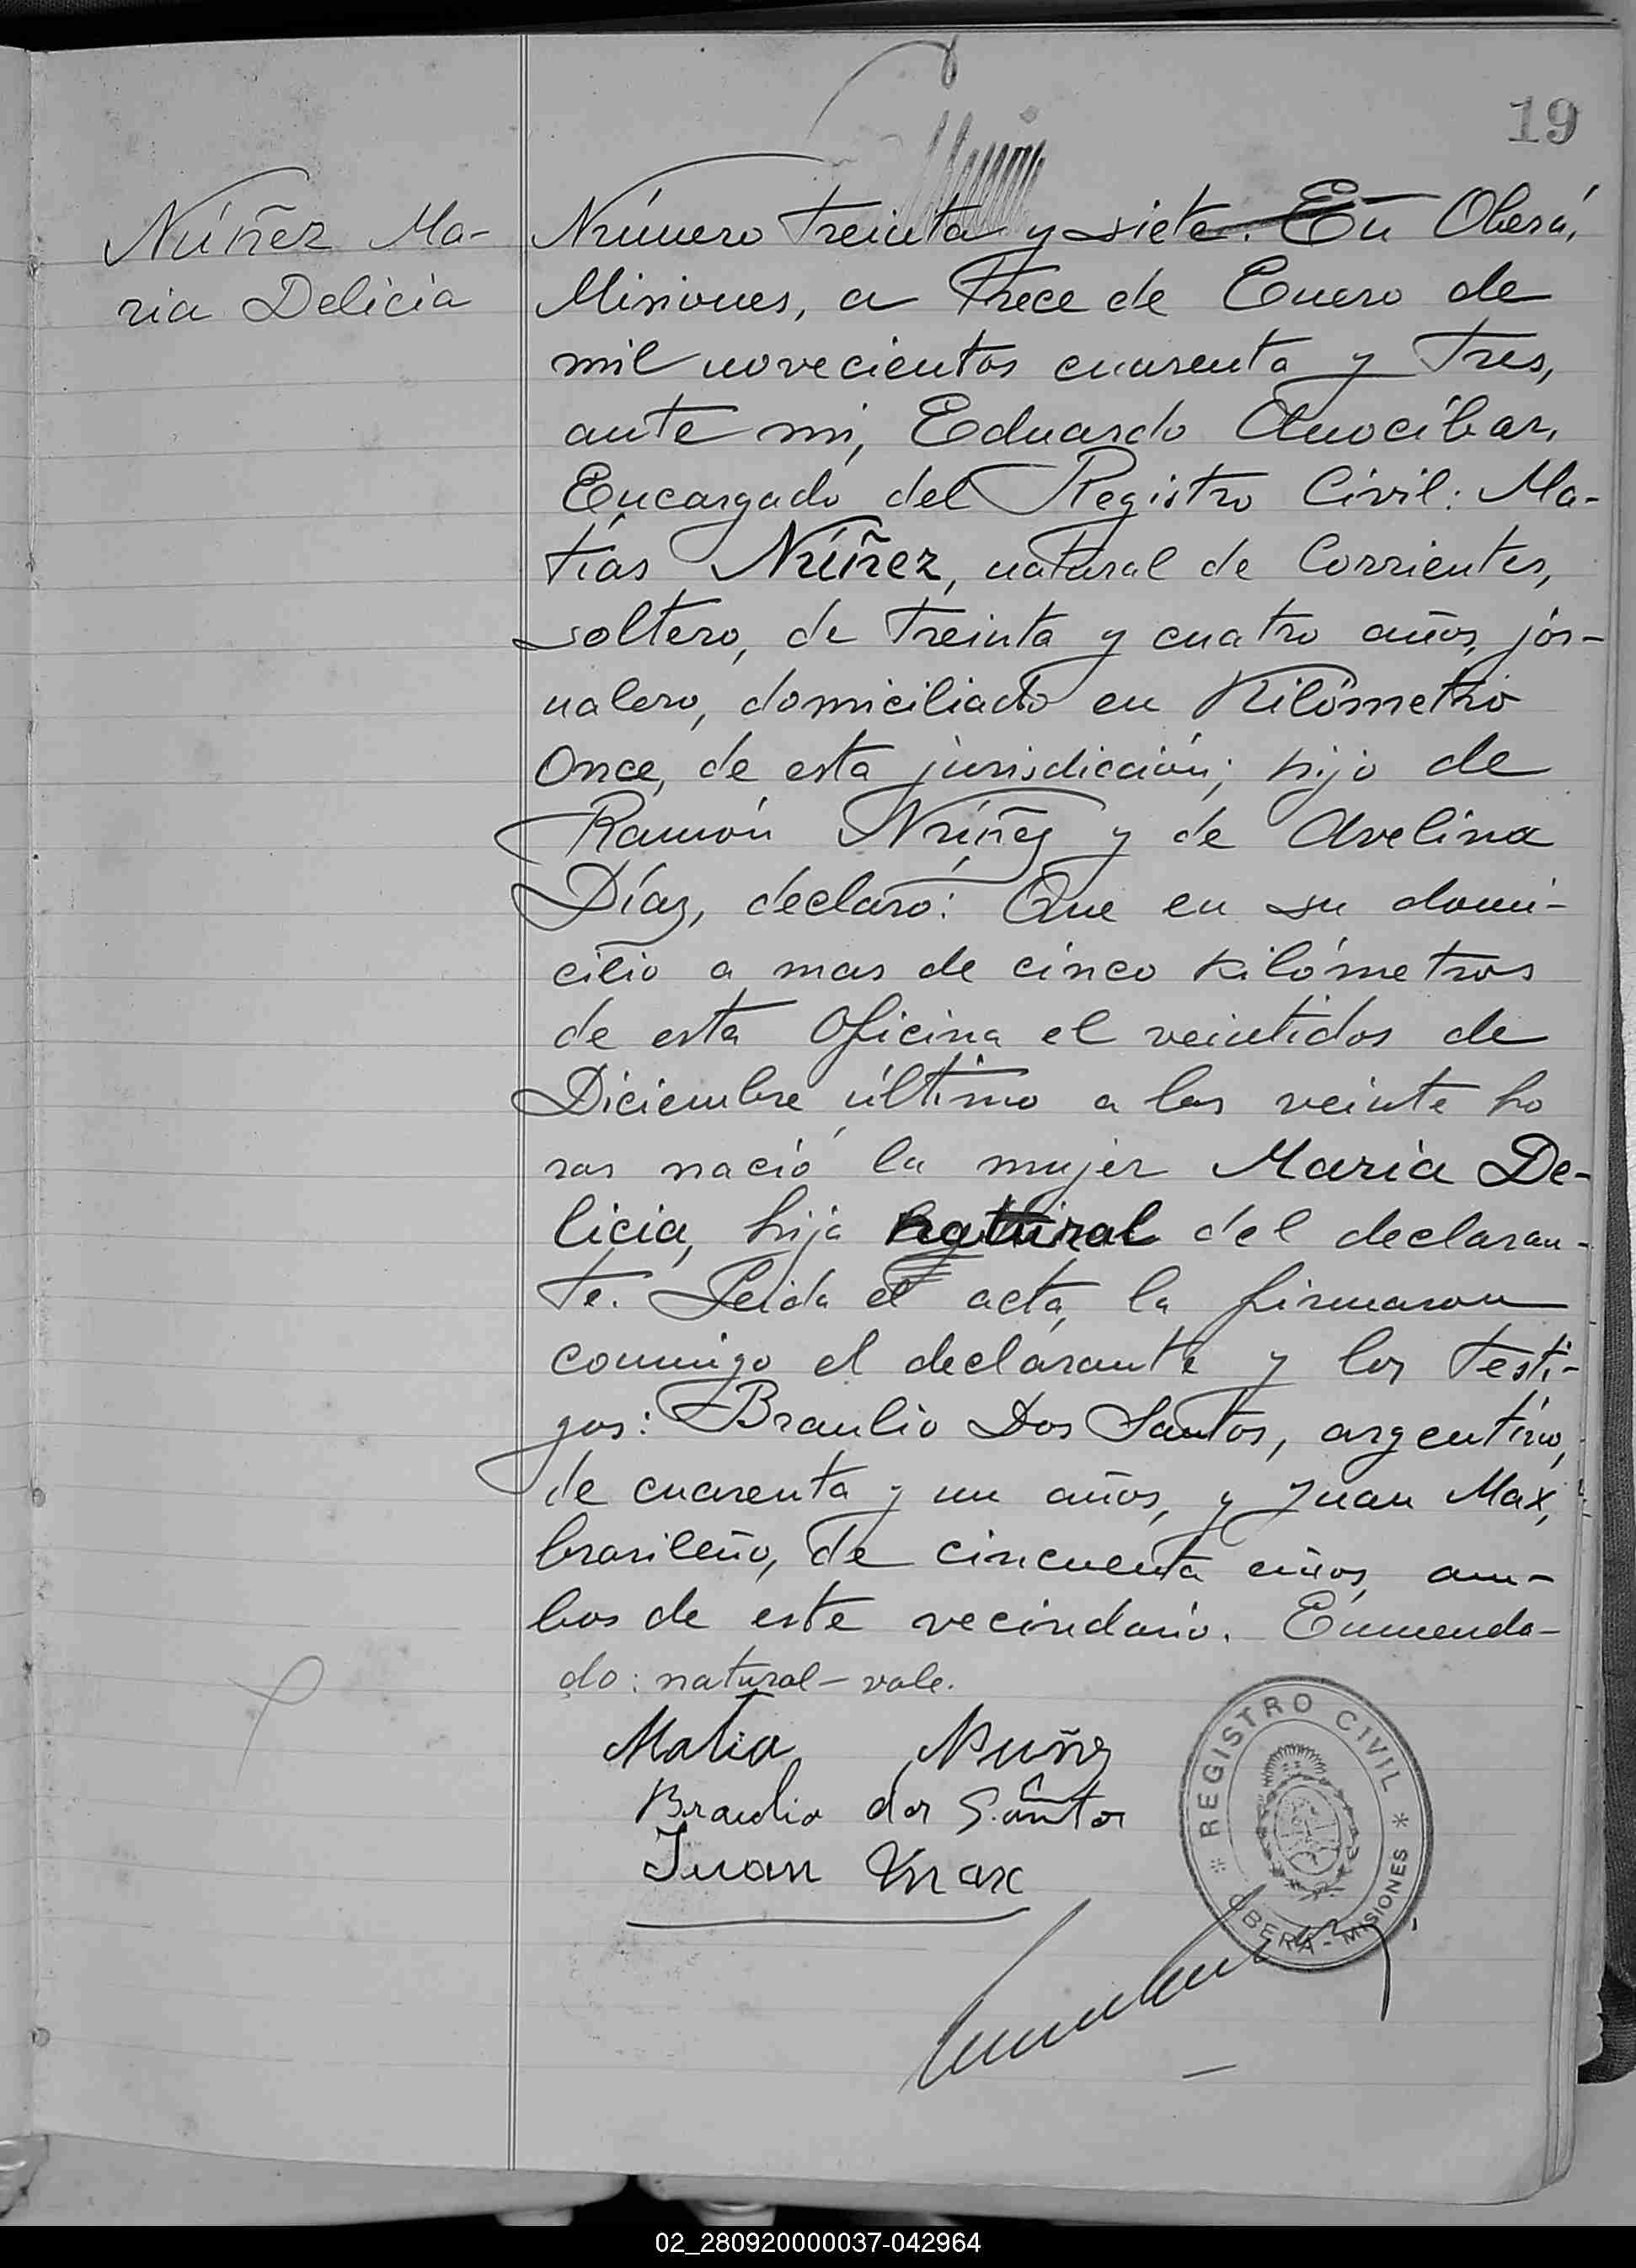 19
Núñez Ma-
ria Delicia
Número treinta y siete. En Oberá,
Misiones, a trece de Enero de
mil novecientos cuarenta y tres,
ante mi, Eduardo Anocíbar,
Encargado del Registro Civil: Ma-
tías Núñez, natural de Corrientes,
soltero, de treinta y cuatro años, jor-
nalero, domiciliado en Kilómetro
Once, de esta jurisdicción; hijo de
Ramón Núñez y de Avelina
Díaz, declaró: Que en su domi-
cilio a mas de cinco kilómetros
de esta Oficina el veintidos de
Diciembre último a las veinte ho
ras nació la mujer Maria De-
licia, hija natural del declaran-
te. Leida el acta, la firmaron
conmigo el declarante y los testi-
gos: Braulio Dos Santos, argentino,
de cuarenta y un años, y Juan Max,
brasileño, de cincuenta años, am-
bos de este vecindario. Enmenda-
do: natural - vale.
Matia Nuñez
Braulio dos Santos
Juan Max
REGISTRO CIVIL
OBERÁ - MISIONES
02_280920000037-042964